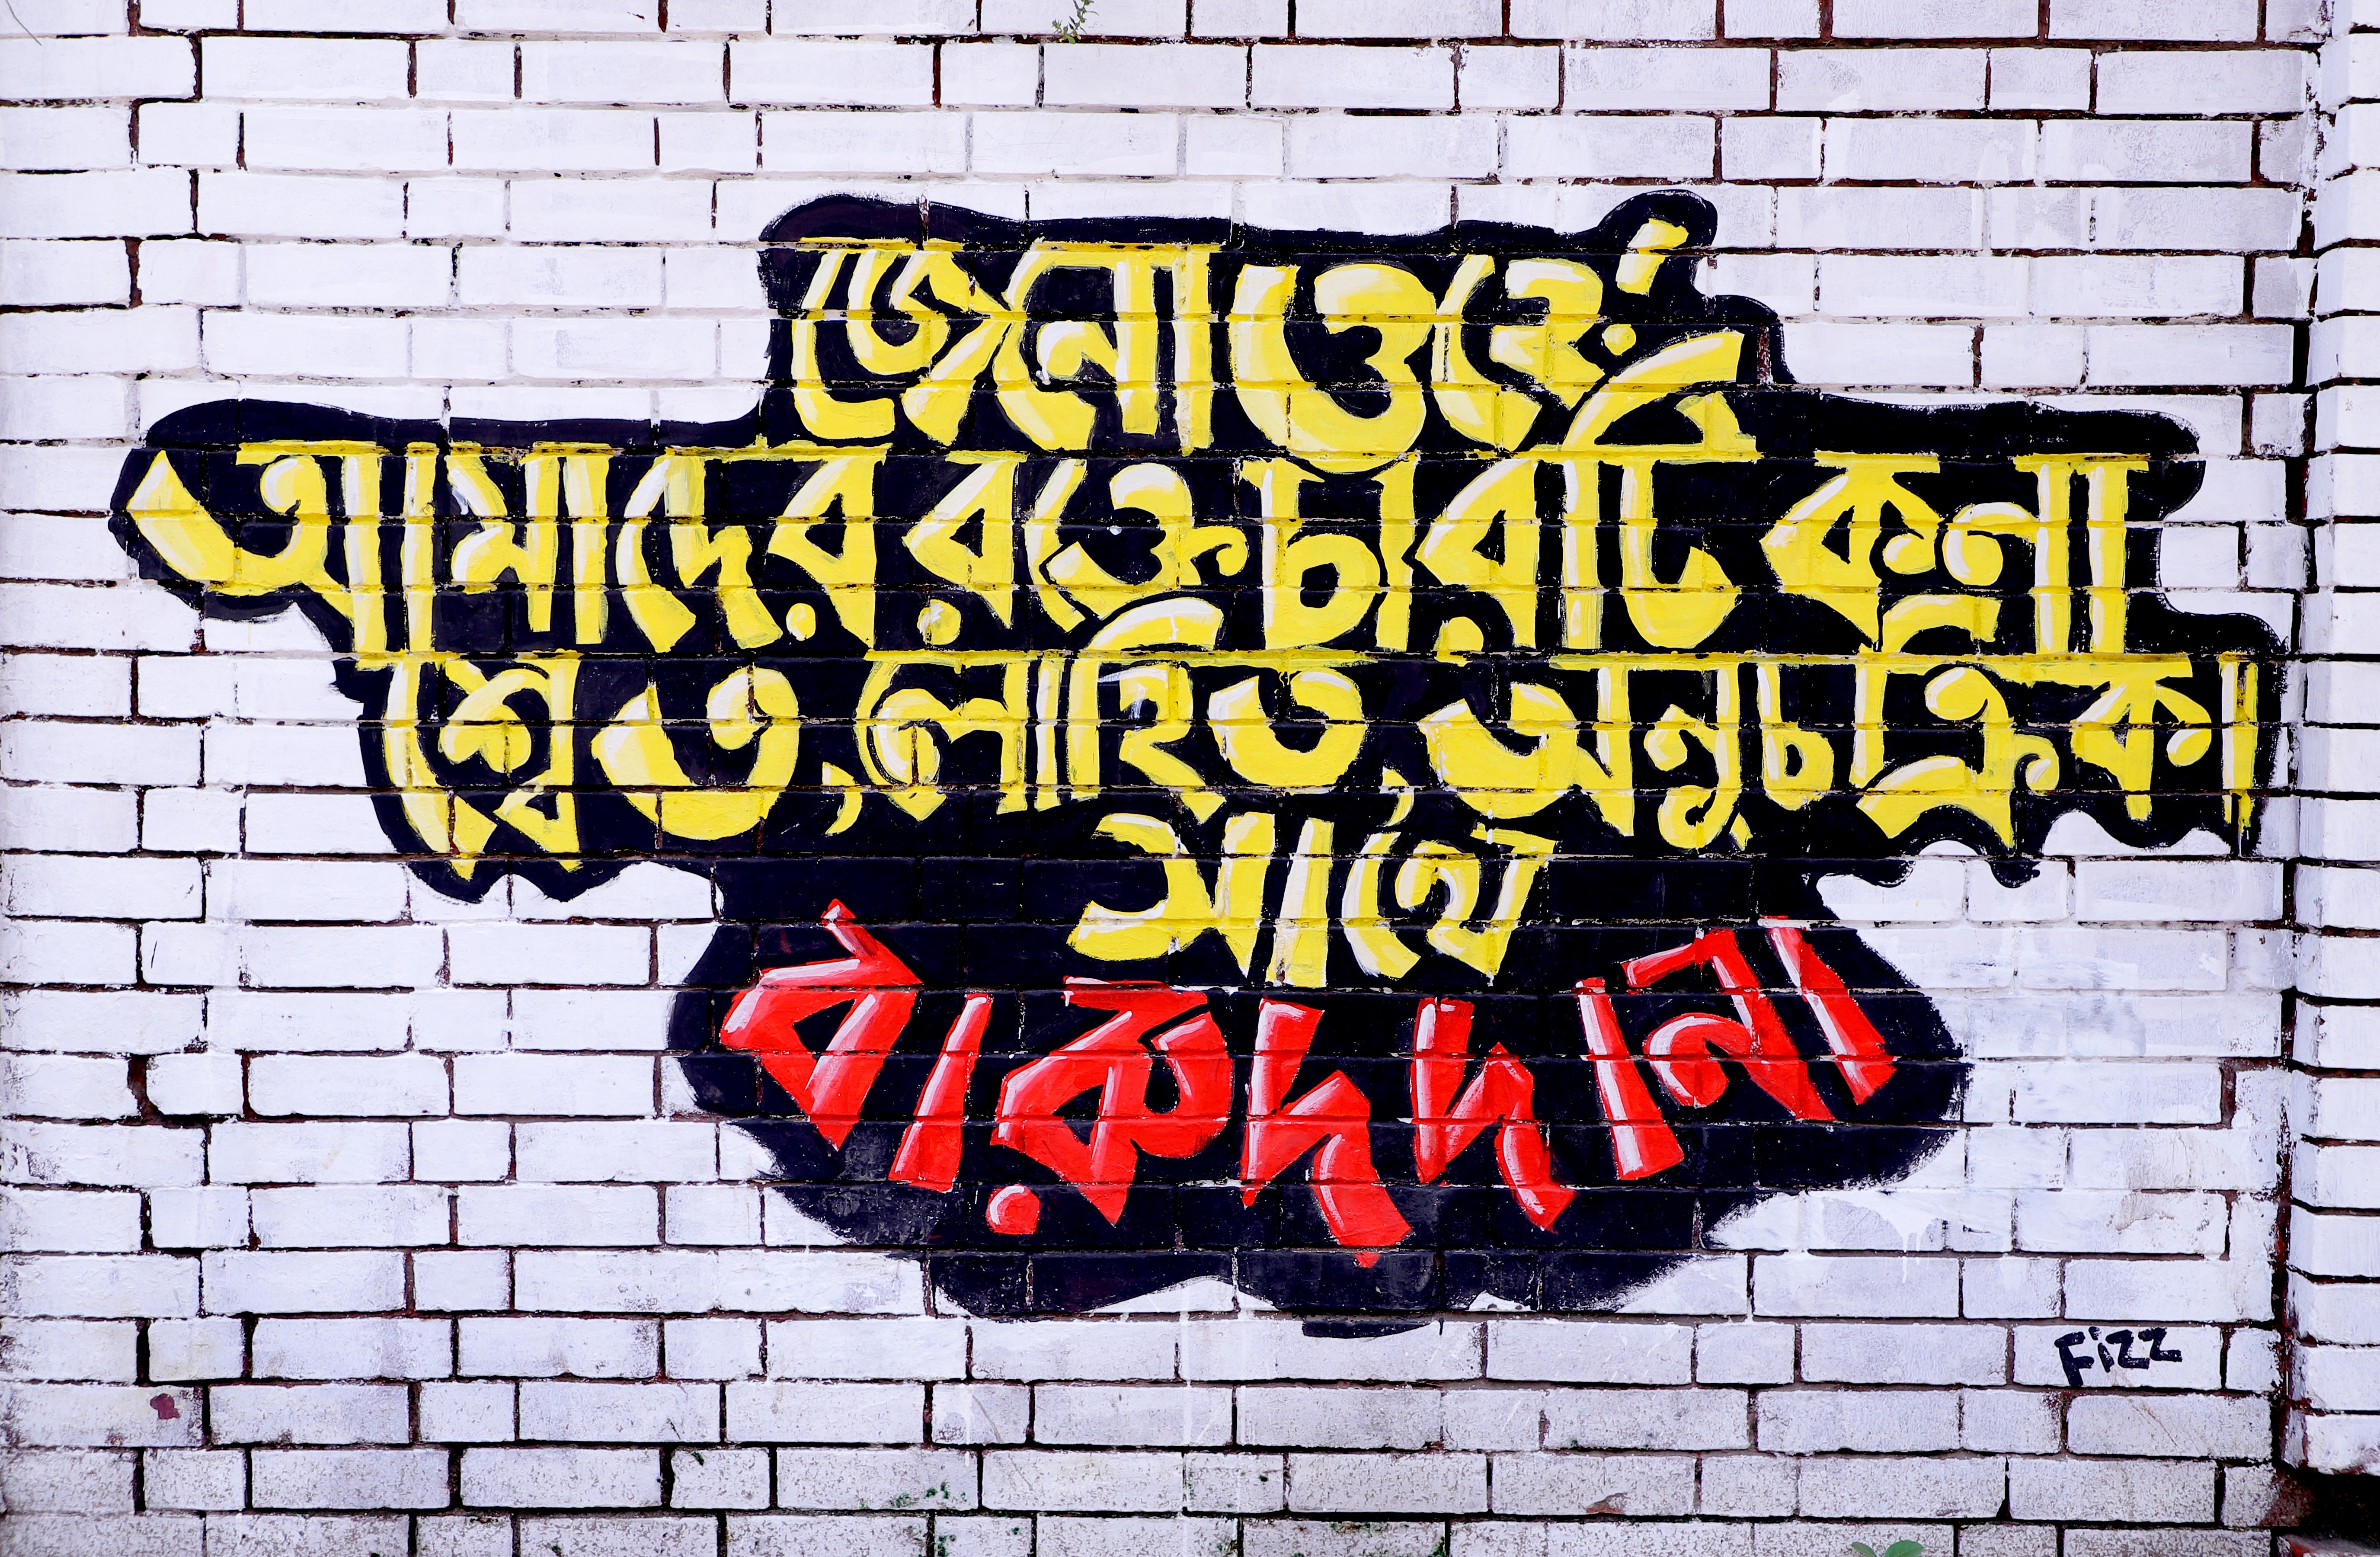 জেনো ওহে!
আমাদের রক্তে চারটি কনা
শ্বেত, লোহিত, অনুচক্রিকা
সাথে
বারুদ দানা
Fizz